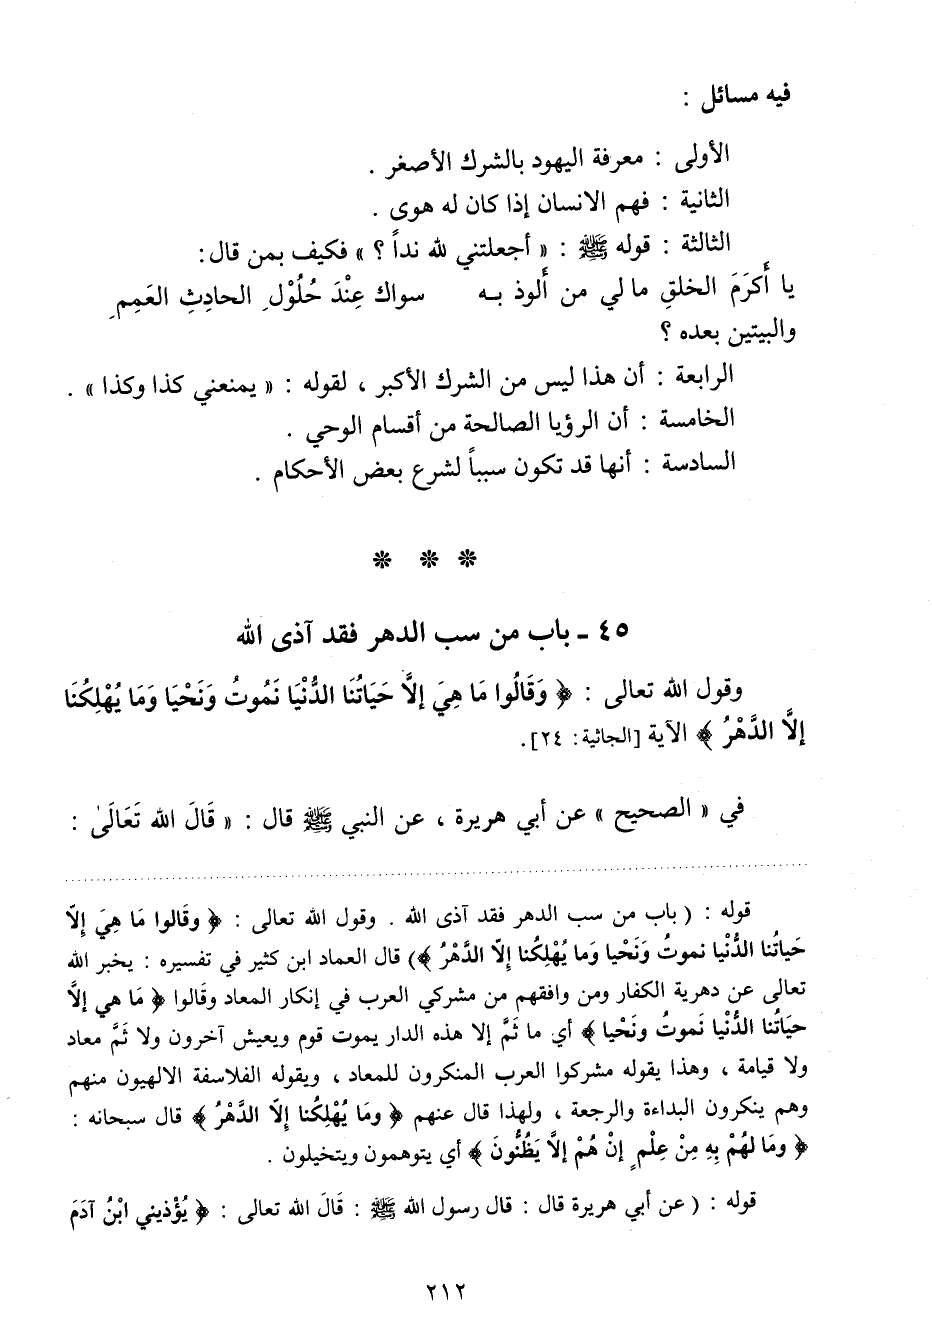 فيه مسائل :
الأولى : معرفة اليهود بالشرك الأصغر .
الثانية : فهم الانسان إذا كان له هوى .
الثالثة : قوله ﷺ : « أجعلتني لله نداً ؟ » فكيف بمن قال:
يا أَكرَمَ الخلقِ ما لي من أَلوذ بـه سواك عِنْدَ حُلُوْلِ الحادِثِ العَمِمِ
والبيتين بعده ؟
الرابعة : أن هذا ليس من الشرك الأكبر ، لقوله : « يمنعني كذا وكذا » .
الخامسة : أن الرؤيا الصالحة من أقسام الوحي .
السادسة : أنها قد تكون سبباً لشرع بعض الأحكام .
* * *
٤٥ ـ باب من سب الدهر فقد آذى الله
وقول الله تعالى : ﴿ وَقَالُوا مَا هِيَ إلاَّ حَيَاتُنَا الدُّنْيَا نَمُوتُ وَنَحْيَا وَمَا يُهْلِكُنَا
إلاَّ الدَّهْرُ ﴾ الآية [الجاثية: ٢٤].
في « الصحيح » عن أبي هريرة ، عن النبي ﷺ قال : « قَالَ الله تَعَالَىٰ :
قوله : ( باب من سب الدهر فقد آذى الله . وقول الله تعالى : ﴿ وقَالوا مَا هِيَ إلاّ
حَياتُنا الدُّنْيا نموتُ وَنَحْيا وَما يُهْلِكنا إلاّ الدَّهْرُ ﴾) قال العماد ابن كثير في تفسيره : يخبر الله
تعالى عن دهرية الكفار ومن وافقهم من مشركي العرب في إنكار المعاد وقَالوا ﴿ مَا هي إلاَّ
حيَاتُنَا الدُّنْيا نَموتُ ونَحْيا ﴾ أي ما ثَمَّ إلا هذه الدار يموت قوم ويعيش آخرون ولا ثَمَّ معاد
ولا قيامة ، وهذا يقوله مشركوا العرب المنكرون للمعاد ، ويقوله الفلاسفة الالهيون منهم
وهم ينكرون البداءة والرجعة ، ولهذا قال عنهم ﴿ ومَا يُهْلِكُنا إلاّ الدَّهْرُ ﴾ قال سبحانه :
﴿ ومَا لهُمْ بِهِ مِنْ عِلْمٍ إنْ هُمْ إلاَّ يَظُنُّونَ ﴾ أي يتوهمون ويتخيلون .
قوله : ( عن أبي هريرة قال : قال رسول الله ﷺ : قَالَ الله تعالى : ﴿ يُؤْذيني ابْنُ آدَمَ
٢١٢